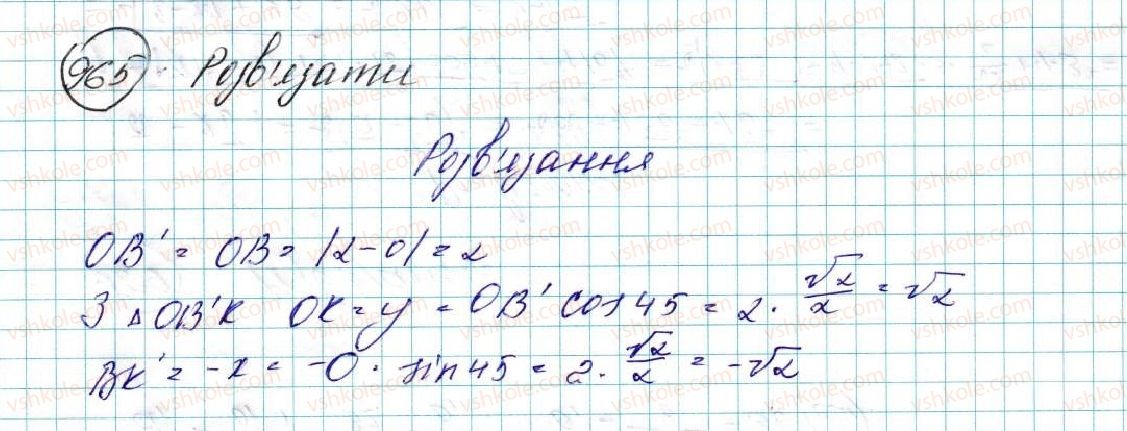 965. Розв'язати
Розв'язання
OB' = OB = |2-0| = 2
З △ OB'K OK = y = OB' cos 45 = 2 · √2/2 = √2
BK' = -x = -0 · sin 45 = 2 · √2/2 = -√2